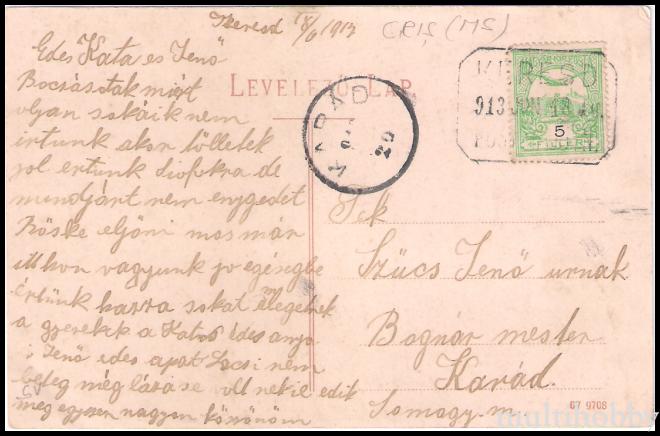 Keresd 18/6 1913
CRIȘ (MS)
LEVELEZŐ-LAP.
KERESD
913 JUN 18
5
FILLÉR
KARÁD
20
Édes Kata és Jenő
Bocsásatak miért
olyan sokáik nem
irtunk akor tölletek
jol értunk diofokra de
mindjánt nem engedet
Böske eljöni mos már
itthon vagyunk jo egéségbe
értünk hazza sokat emlegetnek
a gyerekek a Katos édes anyo
Jenő édes apat Lacsi nem
beteg még láza se volt nekik edik
meg egyszer nagyon köszönöm
Tek
Szücs Jenő urnak
Bognár mester
Karád.
Somogy m.
67 9708
multihobby